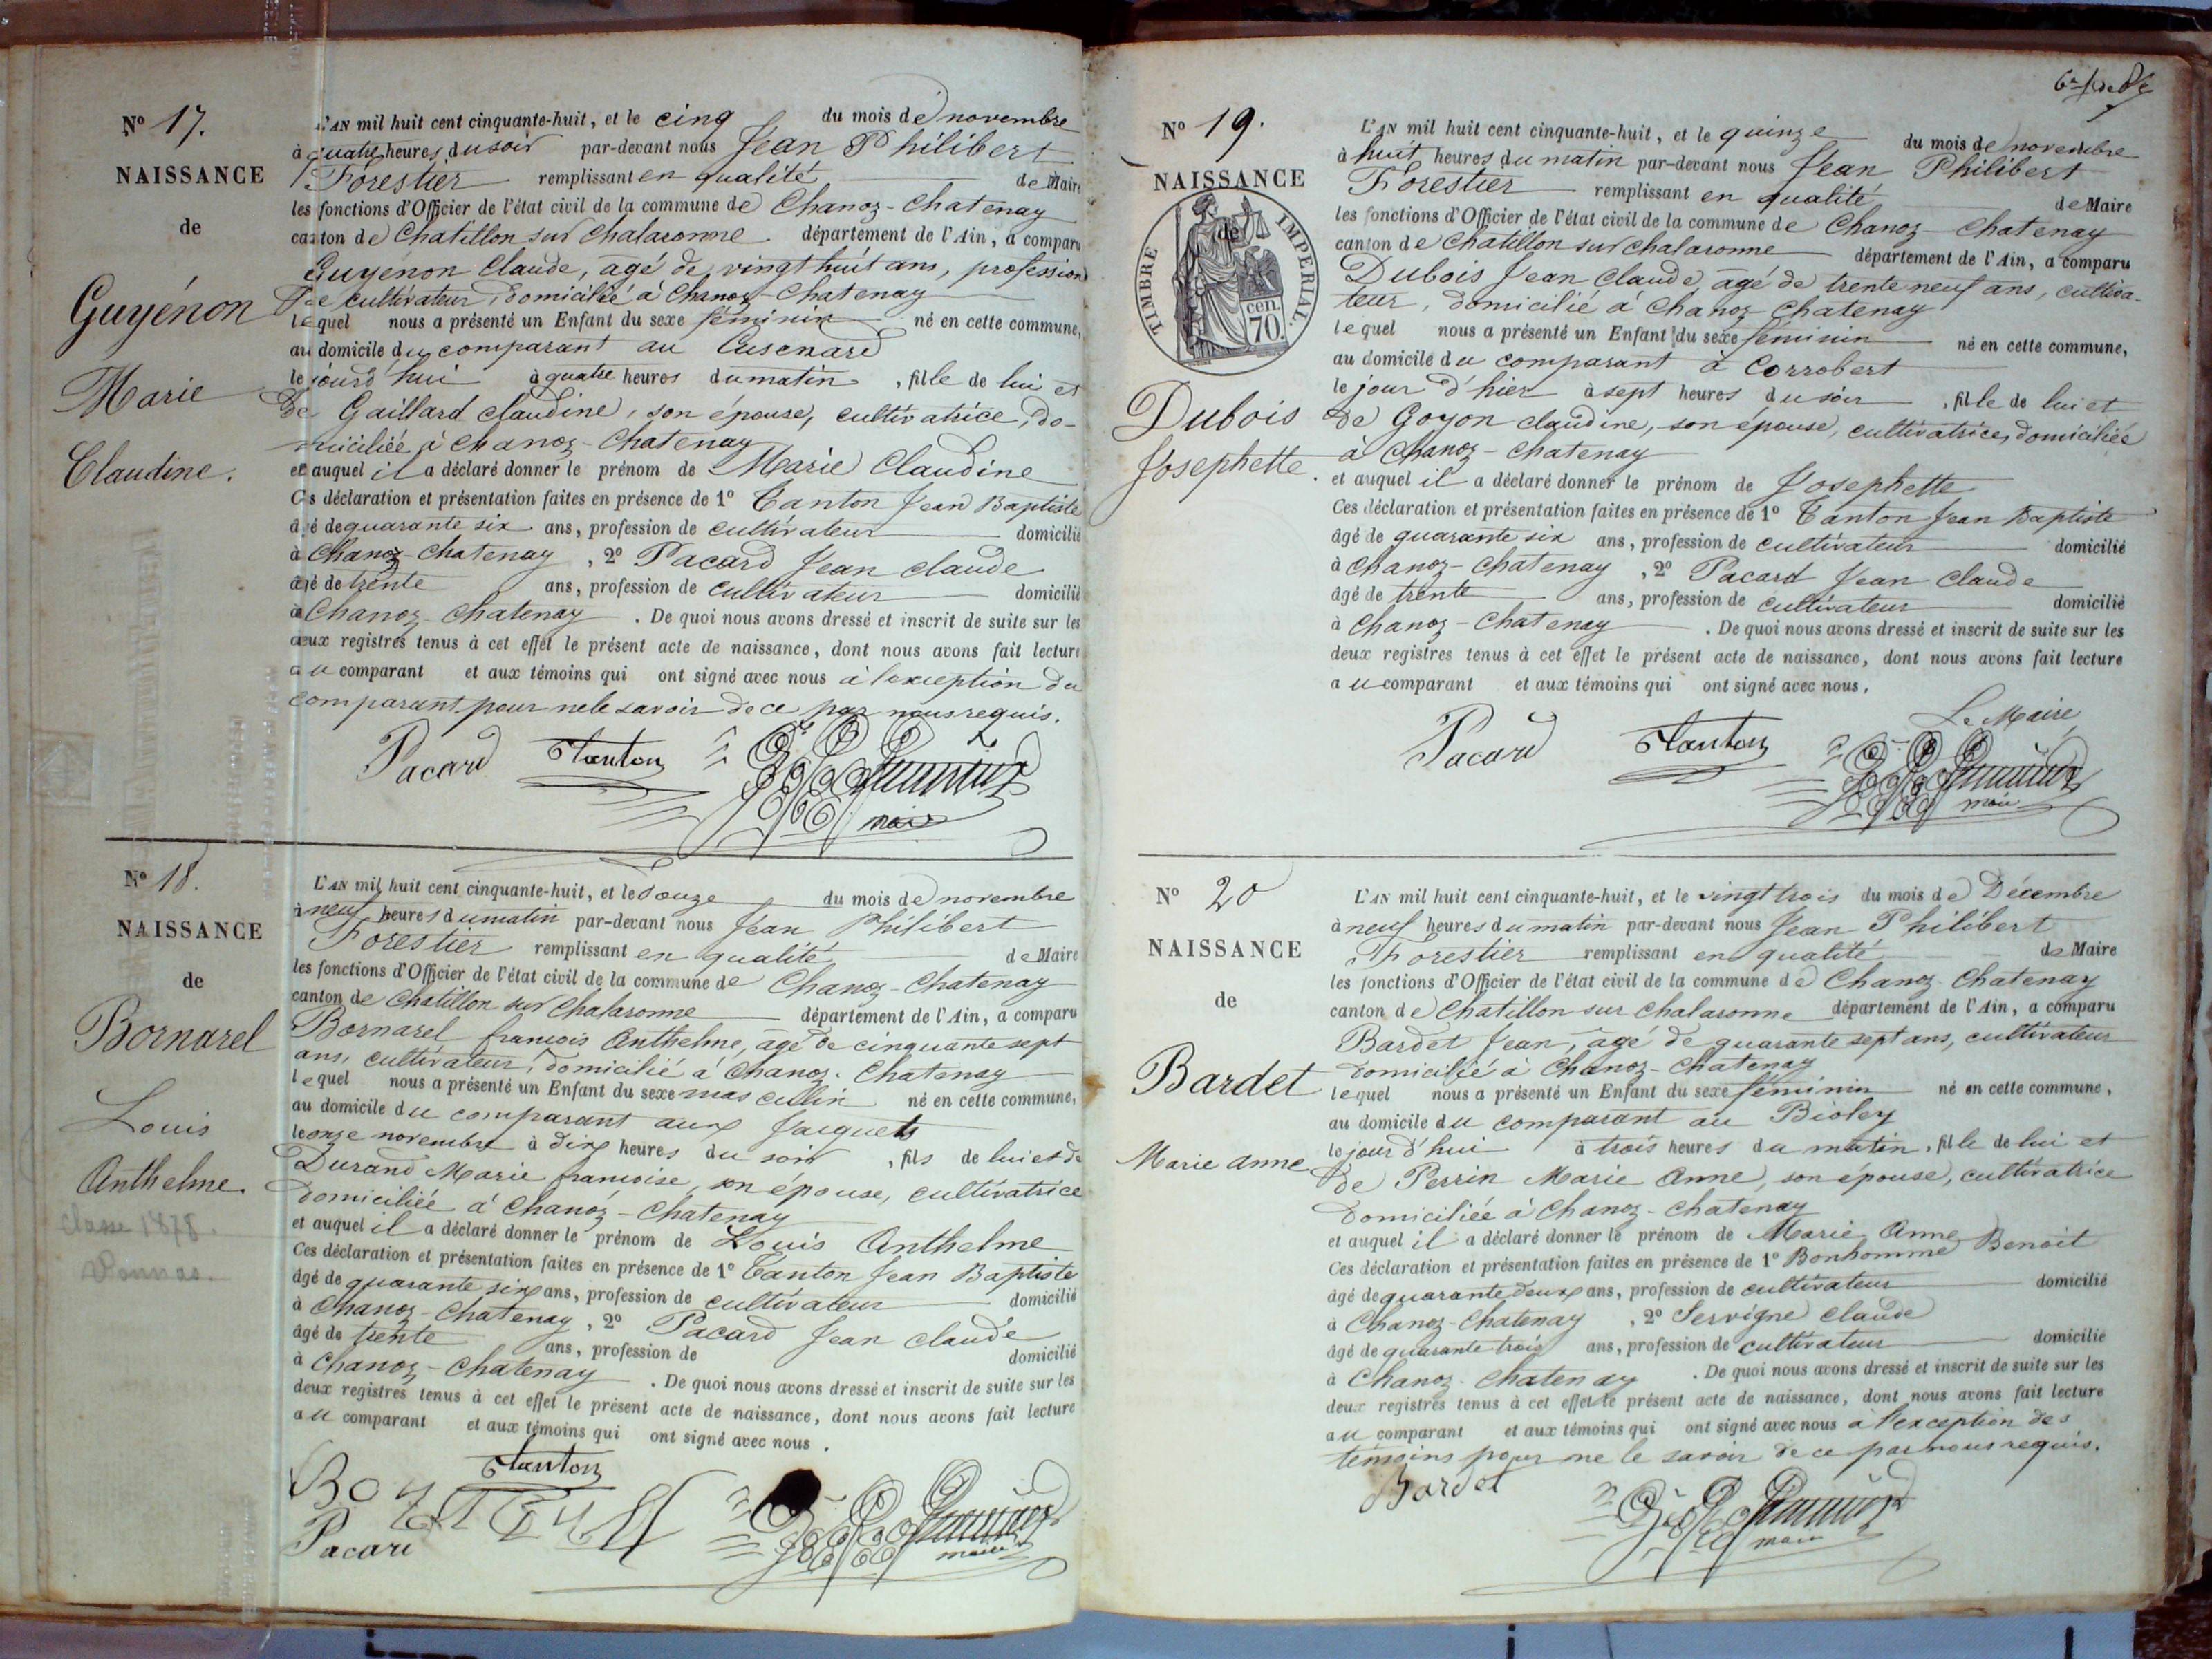 N° 17.
NAISSANCE
de
Guyénon
Marie
Claudine.
L'AN mil huit cent cinquante-huit, et le cinq du mois de novembre
à quatre heures du soir par-devant nous Jean Philibert
Forestier remplissant en qualité de Maire
les fonctions d'Officier de l'état civil de la commune de Chanoz-Chatenay
canton de Chatillon sur Chalaronne département de l'Ain, a comparu
Guyénon Claude, agé de vingt huit ans, profession
de cultivateur, domicilié à Chanoz-Chatenay
lequel nous a présenté un Enfant du sexe féminin né en cette commune,
au domicile du comparant au Cusenard
le jourd'hui à quatre heures du matin, fille de lui et
de Gaillard Claudine, son épouse, cultivatrice, do-
miciliée à Chanoz-Chatenay
et auquel il a déclaré donner le prénom de Marie Claudine
Ces déclaration et présentation faites en présence de 1° Tanton Jean Baptiste
âgé de quarante six ans, profession de cultivateur domicilié
à Chanoz-Chatenay, 2° Pacard Jean Claude
âgé de trente ans, profession de cultivateur domicilié
à Chanoz-Chatenay. De quoi nous avons dressé et inscrit de suite sur les
deux registres tenus à cet effet le présent acte de naissance, dont nous avons fait lecture
au comparant et aux témoins qui ont signé avec nous à l'exception du
comparant pour ne le savoir de ce par nous requis.
Pacard Tanton
maire
N° 18.
NAISSANCE
de
Bornarel
Louis
Anthelme
classe 1878.
L'AN mil huit cent cinquante-huit, et le douze du mois de novembre
à neuf heures du matin par-devant nous Jean Philibert
Forestier remplissant en qualité de Maire
les fonctions d'Officier de l'état civil de la commune de Chanoz-Chatenay
canton de Chatillon sur Chalaronne département de l'Ain, a comparu
Bornarel françois Anthelme, agé de cinquante sept
ans, cultivateur, domicilié à Chanoz-Chatenay
lequel nous a présenté un Enfant du sexe masculin né en cette commune,
au domicile du comparant aux Jacquets
le onze novembre à dix heures du soir, fils de lui et de
Durand Marie françoise, son épouse, cultivatrice
domiciliée à Chanoz-Chatenay
et auquel il a déclaré donner le prénom de Louis Anthelme
Ces déclaration et présentation faites en présence de 1° Tanton Jean Baptiste
âgé de quarante six ans, profession de cultivateur domicilié
à Chanoz-Chatenay, 2° Pacard Jean Claude
âgé de trente ans, profession de domicilié
à Chanoz-Chatenay. De quoi nous avons dressé et inscrit de suite sur les
deux registres tenus à cet effet le présent acte de naissance, dont nous avons fait lecture
au comparant et aux témoins qui ont signé avec nous.
Tanton
Pacard
maire
N° 19.
NAISSANCE
de
TIMBRE IMPERIAL.
70. cen.
Dubois
Josephette.
L'AN mil huit cent cinquante-huit, et le quinze du mois de novembre
à huit heures du matin par-devant nous Jean Philibert
Forestier remplissant en qualité de Maire
les fonctions d'Officier de l'état civil de la commune de Chanoz-Chatenay
canton de Chatillon sur Chalaronne département de l'Ain, a comparu
Dubois Jean Claude, agé de trente neuf ans, cultiva-
teur, domicilié à Chanoz-Chatenay
lequel nous a présenté un Enfant du sexe féminin né en cette commune,
au domicile du comparant à Corrobert
le jour d'hier à sept heures du soir, fille de lui et
de Goyon Claudine, son épouse, cultivatrice, domiciliée
à Chanoz-Chatenay
et auquel il a déclaré donner le prénom de Josephette
Ces déclaration et présentation faites en présence de 1° Tanton Jean Baptiste
âgé de quarante six ans, profession de cultivateur domicilié
à Chanoz-Chatenay, 2° Pacard Jean Claude
âgé de trente ans, profession de cultivateur domicilié
à Chanoz-Chatenay. De quoi nous avons dressé et inscrit de suite sur les
deux registres tenus à cet effet le présent acte de naissance, dont nous avons fait lecture
au comparant et aux témoins qui ont signé avec nous.
Le Maire
Pacard Tanton
maire
N° 20
NAISSANCE
de
Bardet
Marie Anne
L'AN mil huit cent cinquante-huit, et le vingt trois du mois de Décembre
à neuf heures du matin par-devant nous Jean Philibert
Forestier remplissant en qualité de Maire
les fonctions d'Officier de l'état civil de la commune de Chanoz-Chatenay
canton de Chatillon sur Chalaronne département de l'Ain, a comparu
Bardet Jean, agé de quarante sept ans, cultivateur
domicilié à Chanoz-Chatenay
lequel nous a présenté un Enfant du sexe féminin né en cette commune,
au domicile du comparant au Bioley
le jour d'hui à trois heures du matin, fille de lui et
de Perrin Marie Anne, son épouse, cultivatrice
domiciliée à Chanoz-Chatenay
et auquel il a déclaré donner le prénom de Marie Anne
Ces déclaration et présentation faites en présence de 1° Bonhomme Benoit
âgé de quarante deux ans, profession de cultivateur domicilié
à Chanoz-Chatenay, 2° Servigne Claude
âgé de quarante trois ans, profession de cultivateur domicilié
à Chanoz-Chatenay. De quoi nous avons dressé et inscrit de suite sur les
deux registres tenus à cet effet le présent acte de naissance, dont nous avons fait lecture
au comparant et aux témoins qui ont signé avec nous à l'exception des
témoins pour ne le savoir de ce par nous requis.
Bardet
maire